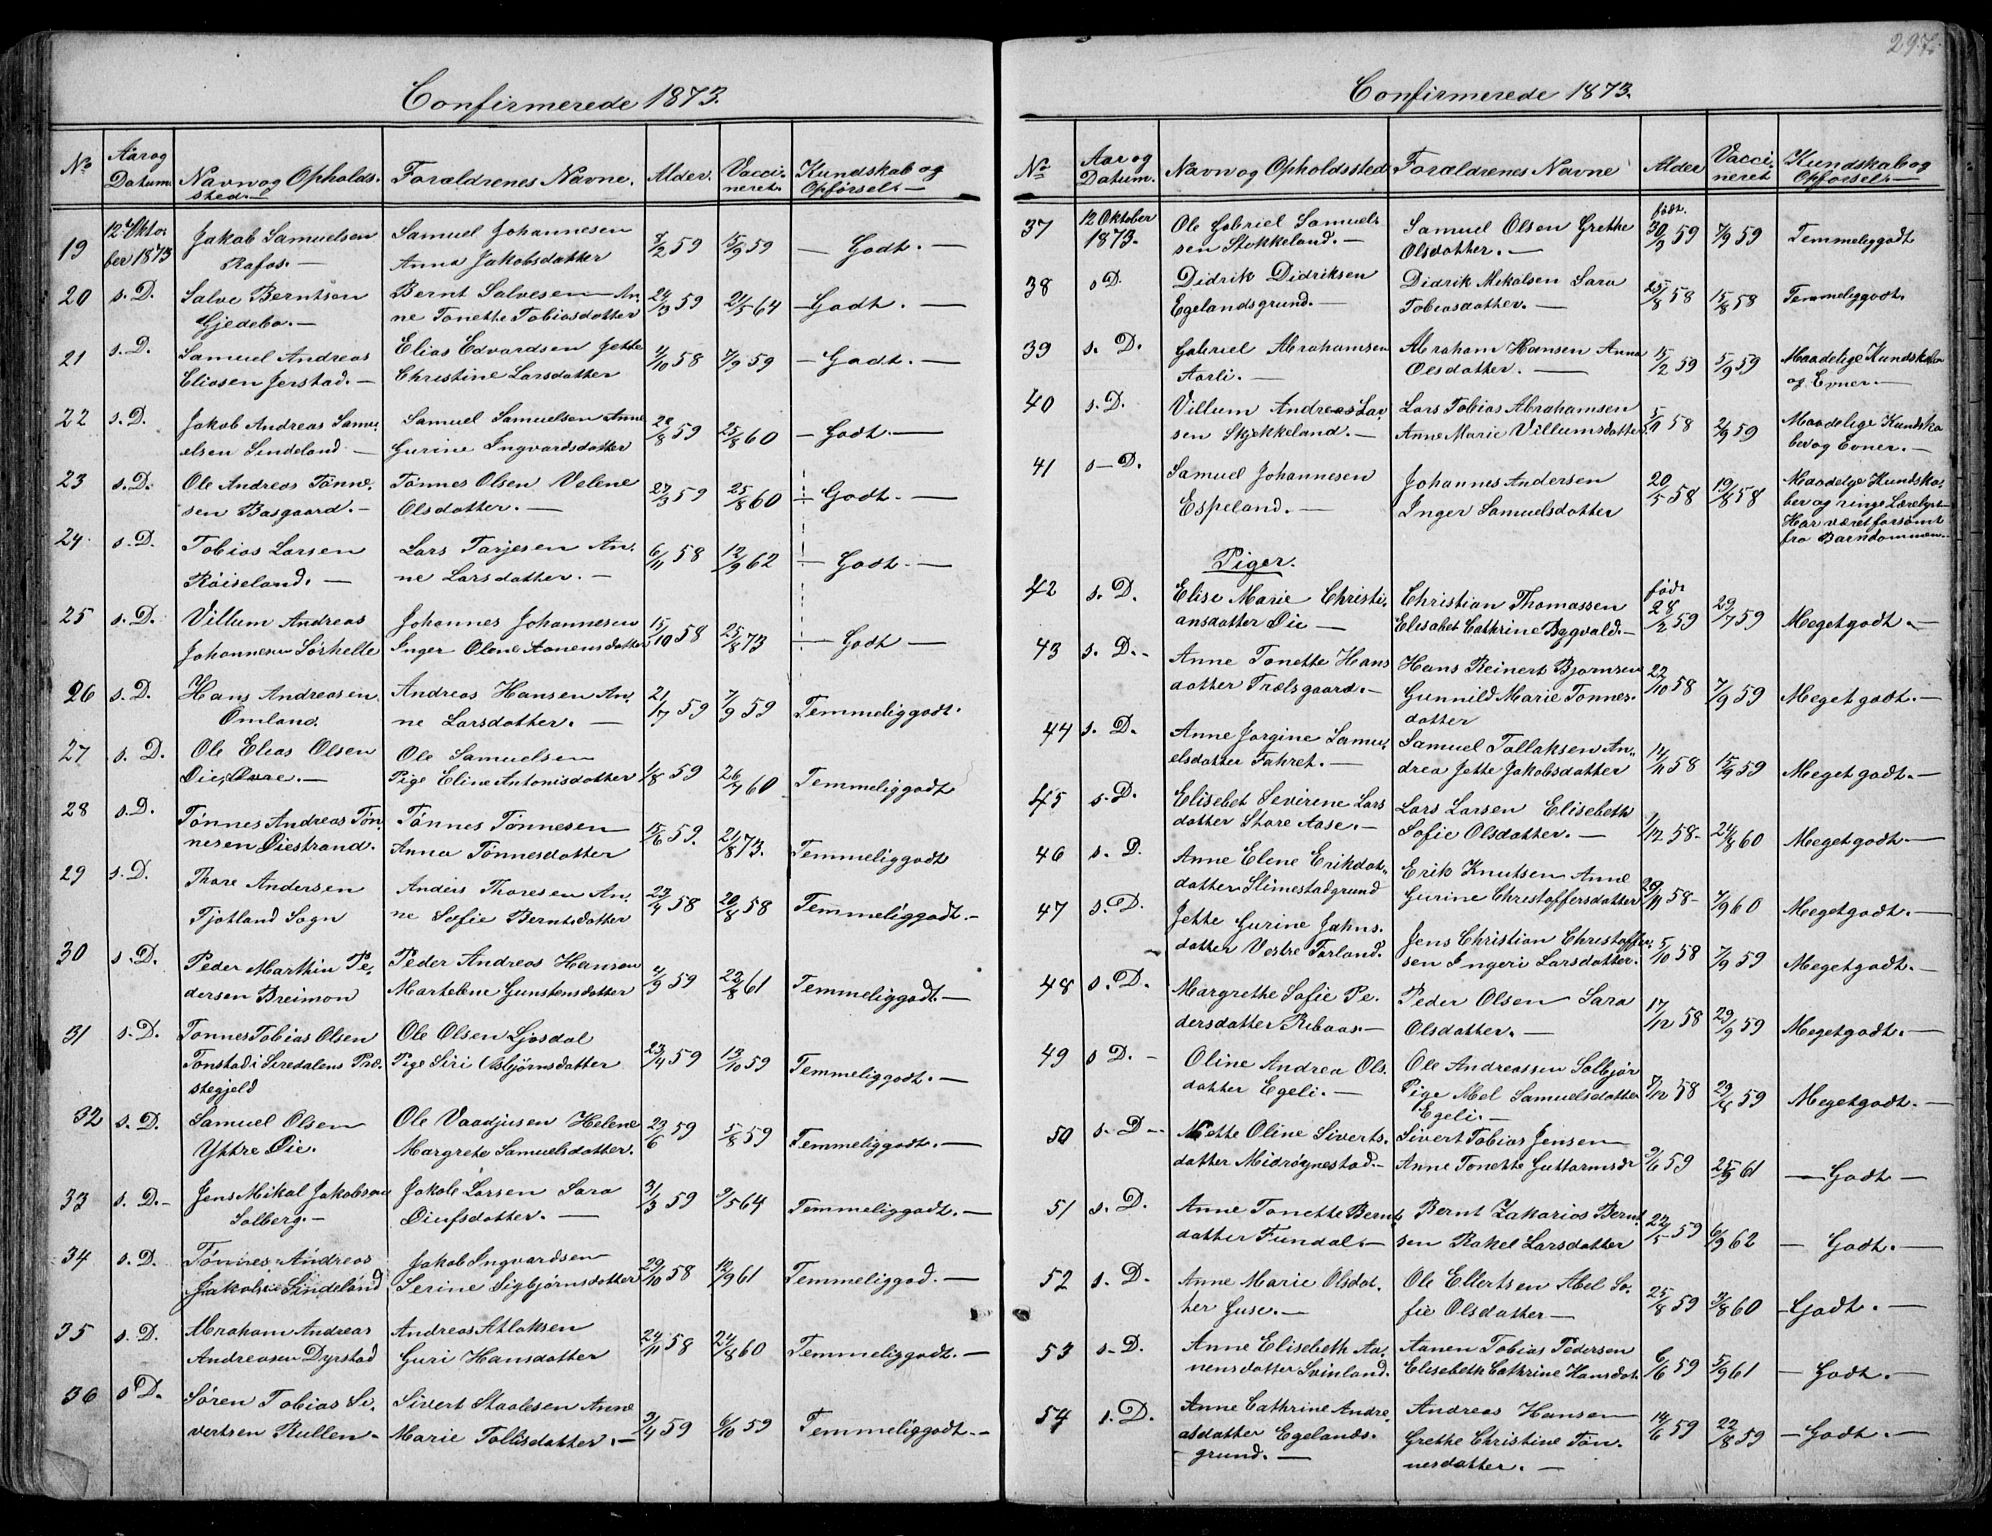 Confirmerede 1873.
No Aar og Datum. Navn og Opholdssted. Forældrenes Navne. Alder. Vaccineret. Kundskab og Opførsel.
19 12te Oktober 1873 Jakob Samuelsen Rafos. — Samuel Johannesen Anna Jakobsdatter 59 15/9 59 — Godt. —
20 s. D. Salve Berntsen Gjedebo. — Bernt Salvesen Anne Tonette Tobiasdatter 24/3 59 21/5 64 — Godt. —
21 s. D. Samuel Andreas Eliasen Jerstad. — Elias Edvardsen Jette Christine Larsdatter 58 7/9 59 — Godt. —
22 s. D. Jakob Andreas Samuelsen Sindeland — Samuel Samuelsen Anne Gurine Ingvardsdatter 59 25/8 60 — Godt. —
23 s. D. Ole Andreas Tønnesen Basgaard. — Tønnes Olsen Velene Olsdatter. — 27/3 59 25/8 60 — Godt. —
24. s. D. Tobias Larsen Røiseland. — Lars Tarjesen Anne Larsdatter. — 6/11 58 12/9 62 — Godt. —
25 s. D. Villum Andreas Johannesen Sørhelle Johannes Johannesen Inger Olene Aanensdatter 15/10 58 25/8 73 — Godt —
26 s. D. Hans Andreasen Omland. Andreas Hansen Anne Larsdatter. — 21/7 59 7/9 59 Temmeliggodt.
27 s. D. Ole Elias Olsen Øie, Øvre. — Ole Samuelsen Pige Eline Antonisdatter 1/8 59 26/7 60 Temmeliggodt
28 s. D. Tønnes Andreas Tønnesen Øiestrand. Tønnes Tønnesen Anna Tønnesdatter 15/6 59. 21/8 73. Temmeliggodt
29 s. D. Thore Andersen Tjotland Sogn Anders Thoresen Anne Sofie Berntsdatter 58 20/8 58 Temmeliggodt. —
30 s. D. Peder Marthin Pedersen Breimon Peder Andreas Hansen Martelene Gunstensdatter 59 22/8 61 Temmeliggodt. —
31 s. D. Tonnes Tobias Olsen Tonstad i Siredalens Præstegjeld Ole Olsen Ljosdal Pige Siri Asbjørnsdatter 23/4 59 13/10 59 Temmeliggodt. —
32 s. D. Samuel Olsen Yttre Øie. Ole Vaadjusen Helene Margrete Samuelsdatter. 29/6 59 5/8 59 Temmeliggodt. —
33 s. D. — Jens Mikal Jakobsen Solberg. — Jakob Larsen Sara Oiufsdatter. — 31/3 59 9/5 64 Temmeliggodt. —
34 s. D. Tønnes Andreas Jakobsen Sindeland Jakob Ingvardsen Serine Sigbjørnsdatter 29/10 58 12/9 61 Temmeliggod. —
35 s. D. Abraham Andreas Andreasen Dyrstad Andreas Atlaksen Guri Hansdatter 24/11 58 24/8 60 Temmeliggodt. —
36 s. D. Søren Tobias Sivertsen Rullen — Sivert Staalesen Anne Marie Tollisdatter. — 3/4 59 6/10 59 Temmeliggodt. —
297.
Confirmerede 1873.
No Aar og Datum. Navn og Opholdssted Forældrenes Navne Alder Vaccineret Kundskab og Opførsel. —
37 12 Oktober 1873. Ole Gabriel Samuelsen Stokkeland. — Samuel Olsen Grethe Olsdatter. — født. 30/9 59 7/9 59 Temmeliggodt
38 s D. Didrik Didriksen Egelandsgrund. — Didrik Mikalsen Sara Tobiasdatter. — 25/8 58 15/8 58 Temmeliggodt.
39 s. D. Gabriel Abrahamsen Aarli. — Abraham Hansen Anna Olsdatter. — 15/2 59 5/9 59 Maadelige Kundskaber og Evner. —
40 s. D. Villum Andreas Larsen Skjekkeland. — Lars Tobias Abrahamsen Anne Marie Villumsdatter 5/11 58 59 Maadelige Kundskaber og Evner. —
41 s — D. Samuel Johannesen Espeland. — Johannes Andersen Inger Samuelsdatter 20/5 58 19/8 58 Maadelge Kundskaber og ringe Lærelyst. Har været forsømt fra Barndommen. —
Piger.
42 s. D. Elise Marie Christiansdatter Øie — Christian Thomassen Elisabet Cathrine Bygvald. — født 28/2 59 29/7 59 Megetgodt. —
43 s. D. — Anne Tonette Hansdatter Trælsgaard. — Hans Reinert Bjørnsen Gunnild Marie Tønnesdatter 22/10 58 7/9 59 Megetgodt. —
44 s. D. Anne Jorgine Samuelsdatter Fahret. — Samuel Tollaksen Andrea Jette Jakobsdatter 14/11 58 15/9 59 Megetgodt. —
45 s. D. Elisebet Severine Larsdatter Store Aase. — Lars Larsen Elisebeth Sofie Olsdatter. — 1/12 58 — 24/8 60 Megetgodt. —
46 s. D. Anne Elene Erikdotdatter Slimestadgrund Erik Knutsen Anne Gurine Christoffersdatter 29/11 58 — 7/9 60 Megetgodt. —
47 s. D. Jette Gurine Jahnsdatter Vestre Farland. Jens Christian Christoffersen Ingeri Larsdatter. 5/10 58 7/9 59 Megetgodt. —
48 s. D. Margrethe Sofie Pedersdatter Rebaas. — Peder Olsen Sara Olsdatter. — 17/12 58 29/9 59 Megetgodt. —
49 s D. — Oline Andrea Olsdatter Egeli. — Ole Andreassen Solbjør Pige Mel Samuelsdatter Egeli. — 7/12 58 29/8 59 Megetgodt. —
50 s. D — Mette Oline Sivertsdatter Midrøgnestad. — Sivert Tobias Jensen Anne Tonette Guttormsdr 9/6 59 25/9 61 — Godt —
51 s. D. Anne Tonette Berntsdatter Fundal. — Bernt Zakarias Berntsen Rakel Larsdatter 22/5 59 6/9 62 — Godt. —
52 s. D. Anne Marie Olsdatter Guse. — Ole Ellertsen Abel Sofie Olsdatter — 25/8 59 3/8 60 — Godt. —
53 s. D. Anne Elisebeth Aanensdatter Svinland. Aanen Tobias Pedersen Elisebeth Cathrine Hansdat. 6/6 59 5/9 61 — Godt. —
54 s. D. Anne Cathrine Andreasdatter Egelandsgrund. — Andreas Hansen Grethe Christine Tønnesdatter. — 14/6 59 22/8 59 — Godt. —